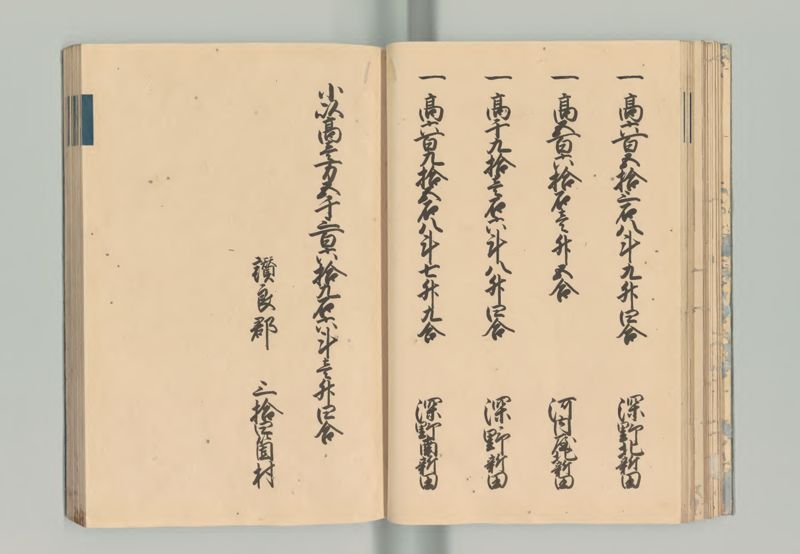 一高六百五拾三石八斗九升四合 深野北新田
一高五百六拾石壱升五合 河内屋新田
一高千九拾壱石六斗八升四合 深野新田
一高六百九拾五石八斗七升九合 深野南新田
小以高壱万五千三百六拾九石六斗壱升四合
讃良郡 三拾四箇村